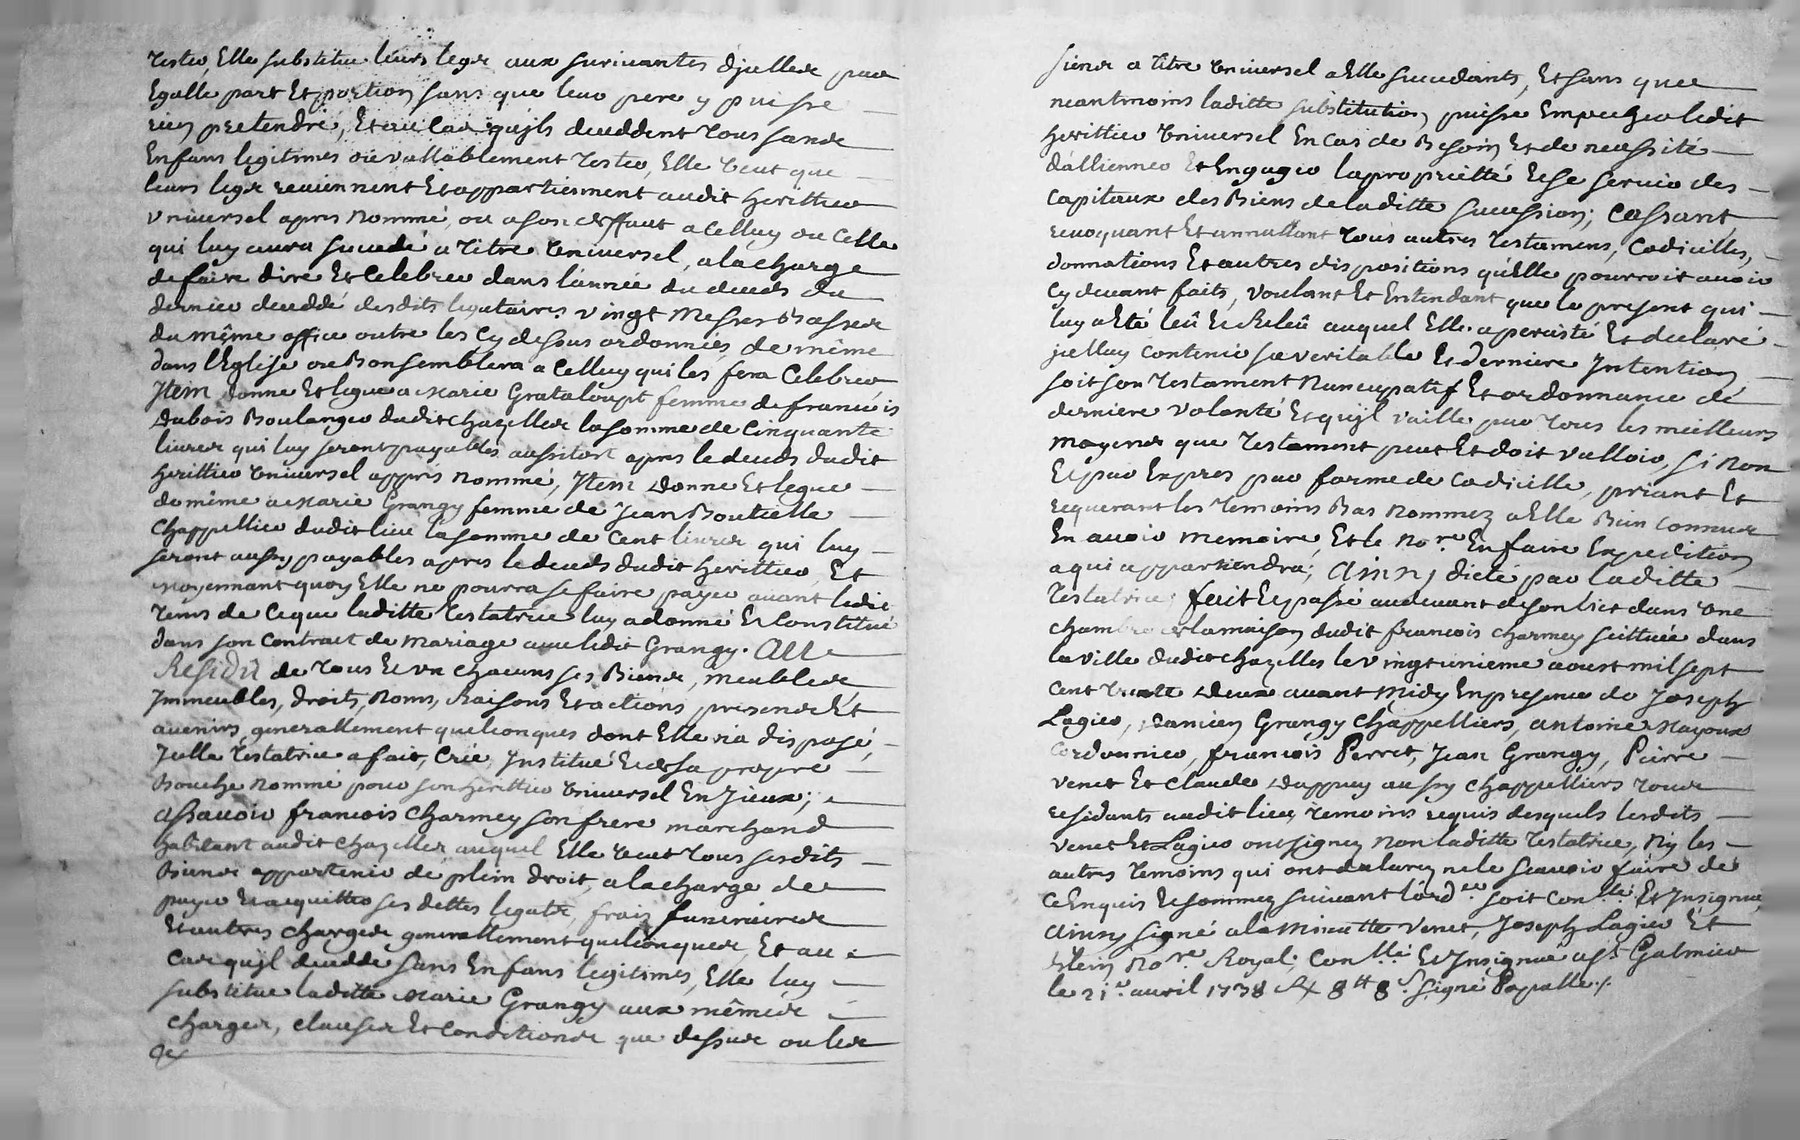 tester, Elle substitue leurs legs aux survivantes d'jcelles par
Egalle part Et portion sans que leur pere y puisse
rien pretendre, Et au cas qu'jls deceddent tous sans
Enfans legitimes ou vallablement tester, Elle veut que
leurs legs reviennent Et appartiennent audit heritier
vniversel apres nommé, ou a son deffaut a celluy ou celle
qui luy aura succedé a titre vniversel, a la charge
de faire dire Et Celebrer dans l'année du deceds du
dernier deceddé desdits legataires vingt Messes Basses
du même office outre les Cy dessous ordonnées, de même
dans l'Eglise ou Bon semblera a Celluy qui les fera Celebrer
Jtem donne Et legue a Marie Grataloupt femme de francois
Dubois Boulanger dudit Chazelles la somme de Cinquante
livres qui luy seront payables aussitost apres le deceds dudit
heritier vniversel appres nommé, Jtem donne Et legue
de même a Marie Grangy femme de Jean Boutielle
Chappellier dudit lieu la somme de Cent livres qui luy
seront aussy payables apres le deceds dudit heritier, Et
moyennant quoy Elle ne pourra se faire payer avant ledit
tems de ce que laditte testatrice luy a donné Et Constitué
dans son contract de mariage avec ledit Grangy. Au
Residu de tous Et vn chacuns ses Biens, meubles
Jmmeubles, droits, Noms, Raisons Et actions, presends Et
avenirs, generallement quelconques dont Elle n'a disposé,
Jcelle testatrice a fait, Crée, Jnstitué Et de sa propre
Bouche Nommé pour son heritier vniversel En Jceux;
assavoir francois Charmey son frere marchand
habitant audit Chazelles auquel Elle veut tous sesdits
Biens appartenir de plein droit, a la charge de
payer Et acquitter ses dettes legats, frais funeraires
Et autres charges generallement quelconques, Et au
Cas qu'jl decedde sans Enfans legitimes, Elle luy
substitue laditte Marie Grangy aux mêmes
charges, clauses Et Conditions que dessus ou les
siens a titre vniversel a Elle succedants, Et sans que
neantmoins laditte substitution puisse Empecher ledit
heritier vniversel En cas de Besoin Et de necessité
d'alliener Et Engager la proprietté Et se servir des
Capitaux des Biens de laditte succession; Cassant,
revoquant Et annullant tous autres testamens, Codicilles,
donnations Et autres dispositions qu'Elle pourroit avoir
Cy devant faits, voulant Et Entendant que le present qui
luy a Eté leû Et Releû auquel Elle a persisté Et declaré
jcelluy contenir sa veritable Et derniere Jntention
soit son testament Nuncupatif Et ordonnance de
derniere volonté Et qu'jl vaille par tous les meilleurs
moyens que testament peut Et doit valloir, si non
Et par Expres par forme de Codicille, priant Et
requerant les temoins Bas nommez a Elle Bien connus
En avoir memoire, Et le Nore. En faire Expedition
a qui appartiendra; Ainsy dicté par laditte
testatrice, fait Et passé au devant de son lict dans vne
chambre de la maison dudit francois Charmey scittuée dans
la ville dudit Chazelles le vingt unieme aoust mil sept
cent trente deux avant Midy En presence de Joseph
Lagier, Damien Grangy Chappelliers, antoine Mayoux
Cordonnier, francois Perret, Jean Grangy, Pierre
Venet Et Claude Duppuy aussy Chappelliers tous
residants audit lieu temoins requis desquels lesdits
Venet Et Lagier ont signez Non laditte testatrice, Ny les
autres temoins qui ont declarez ne le scavoir faire de
ce Enquis Et sommez suivant l'ordce. soit Conlle. Et Jnsignue,
Ainsy signé a la Minutte Venet, Joseph Lagier Et
Nore. Royal, Conllé. Et Jnsignué a St. Galmier
le 21e. avril 1738 Rx 8tt 8s. signé Papalle ./.